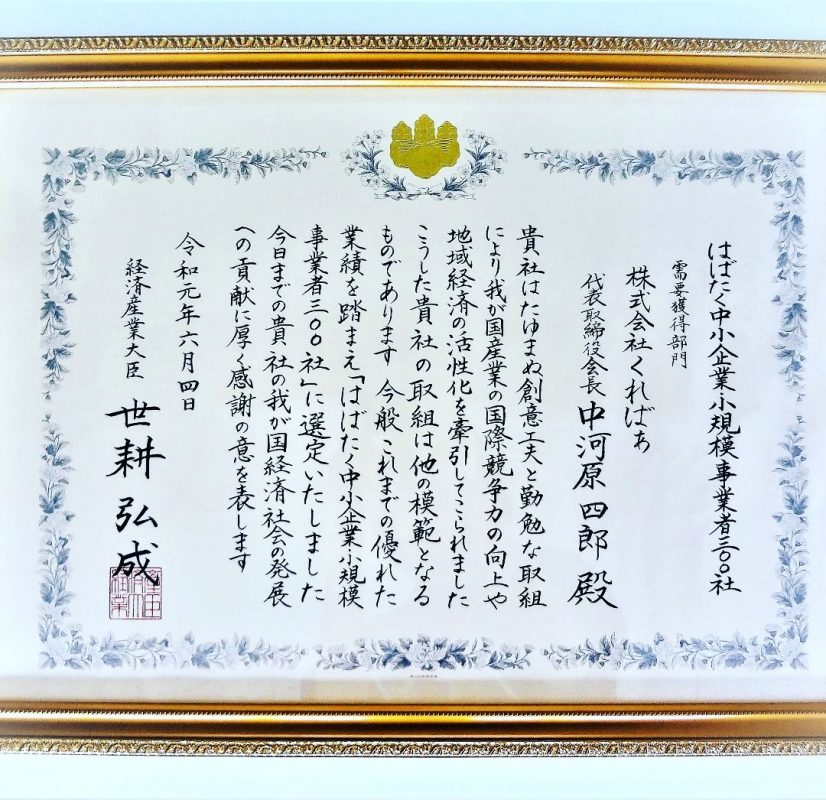 はばたく中小企業・小規模事業者三〇〇社
需要獲得部門
株式会社くればぁ
代表取締役会長 中河原四郎 殿
貴社はたゆまぬ創意工夫と勤勉な取組
により我が国産業の国際競争力の向上や
地域経済の活性化を牽引してこられました
こうした貴社の取組は他の模範となる
ものであります 今般これまでの優れた
業績を踏まえ「はばたく中小企業・小規模
事業者三〇〇社」に選定いたしました
今日までの貴社の我が国経済社会の発展
への貢献に厚く感謝の意を表します
令和元年六月四日
経済産業大臣 世耕弘成